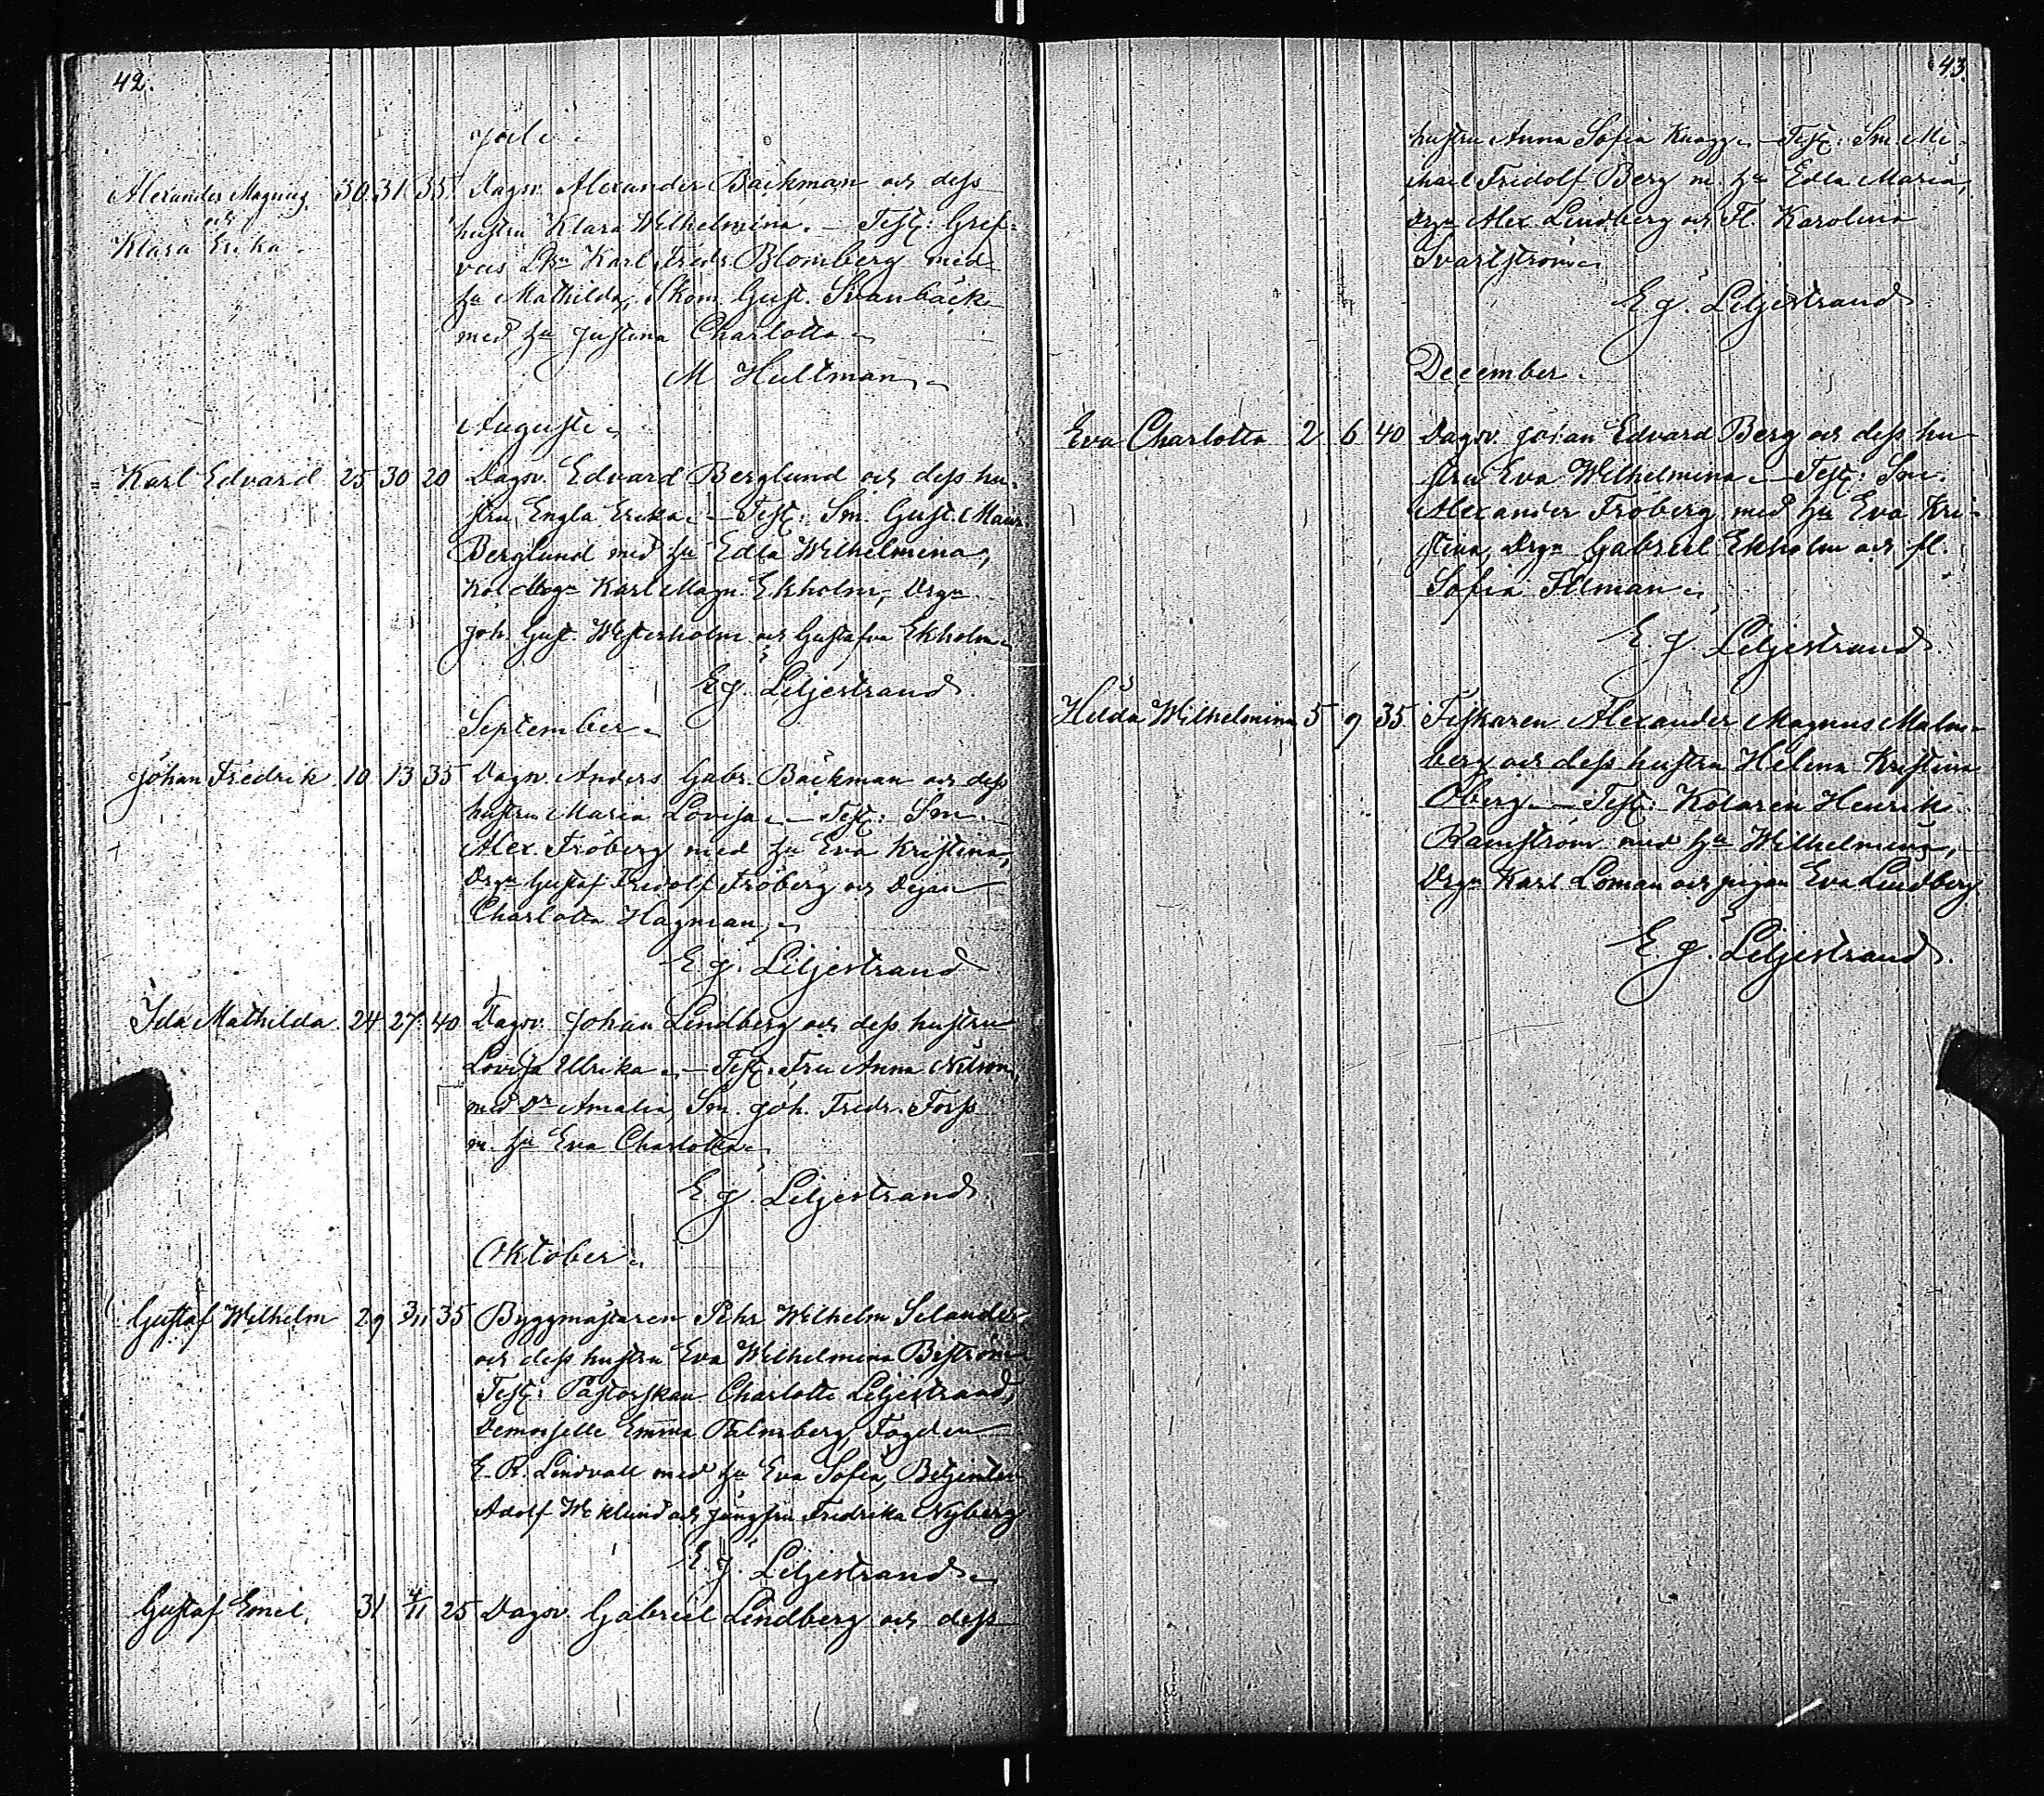 42.
Juli.
Alexander Magnus 30. 31 35. Dagsv. Alexander Bäckman och dess
och
Klara Erika. hustru Klara Wilhelmina. — Test: Gref-
veis Karl Fredr. Blomberg med
hu Mathilda, Skom. Gust. Svanbäck
med hu Justina Charlotta.
M Hultman.
Augusti.
Karl Edvard 25 30 20 Dagsv. Edvard Berglund och dess hu-
stru Engla Erika. — Test: Sm. Gust. Maur.
Berglund med hu Edla Wilhelmina,
Kol Karl Magn. Ekholm, Drgn
Joh. Gust. Westerholm och Gustafva Ekholm.
E J. Liljestrand.
September.
Johan Fredrik. 10. 13 35 Dagsv. Anders Gabr. Bäckman och dess
hustru Maria Lovisa. — Test: Sm.
Alex. Fröberg med hu Eva Kristina,
Drgn Gustaf Fridolf Fröberg och
Charlotta Hagman.
E J. Liljestrand
Ida Mathilda. 24. 27. 40 Dagsv. Johan Lindberg och dess hustru
Lovisa Ulrika. — Test. Fru Anna
med dr Amalia, Sm. Joh. Fredr. Forss
m. hu Eva Charlotta.
E J. Liljestrand.
Oktober.
Gustaf Wilhelm 29 3/11 35 Byggmästaren Pehr Wilhelm Selander
och dess hustru Eva Wilhelmina Biström.
Test: Pastorskan Charlotte Liljestrand,
Demoiselle Emma Palmberg, Fogden
E. R. Lindvall med hu Eva Sofia, Betjenten
Adolf Weklund och Jungfru Fredrika Nyberg
E. J. Liljestrand.
Gustaf Emil. 31 4/11 25 Dagsv. Gabriel Lindberg och dess
43.
hustru Anna Sofia Knagge. — Test: Sm. Mi-
chael Fridolf Berg m. hu Edla Maria,
Drgn Alex. Lindberg och Fl. Karolina
Svartström.
E J. Liljestrand.
December.
Eva Charlotta 2 6 40 Dagsv. Johan Edvard Berg och dess hu-
stru Eva Wilhelmina. — Test: Sm.
Alexander Fröberg med hu Eva Kri-
stina, Drgn Gabriel Ekholm och fl.
Sofia Flman.
E. J Liljestrand.
Hilda Wilhelmina 5 9 35. Fiskaren Alexander Magnus Malm-
berg och dess hustru Helena Kristina
Öberg. — Test: Kolaren Henrik
Ramström med hu Wilhelmina,
Drgn Karl Loman och pigan Eva Lindberg.
E J. Liljestrand.